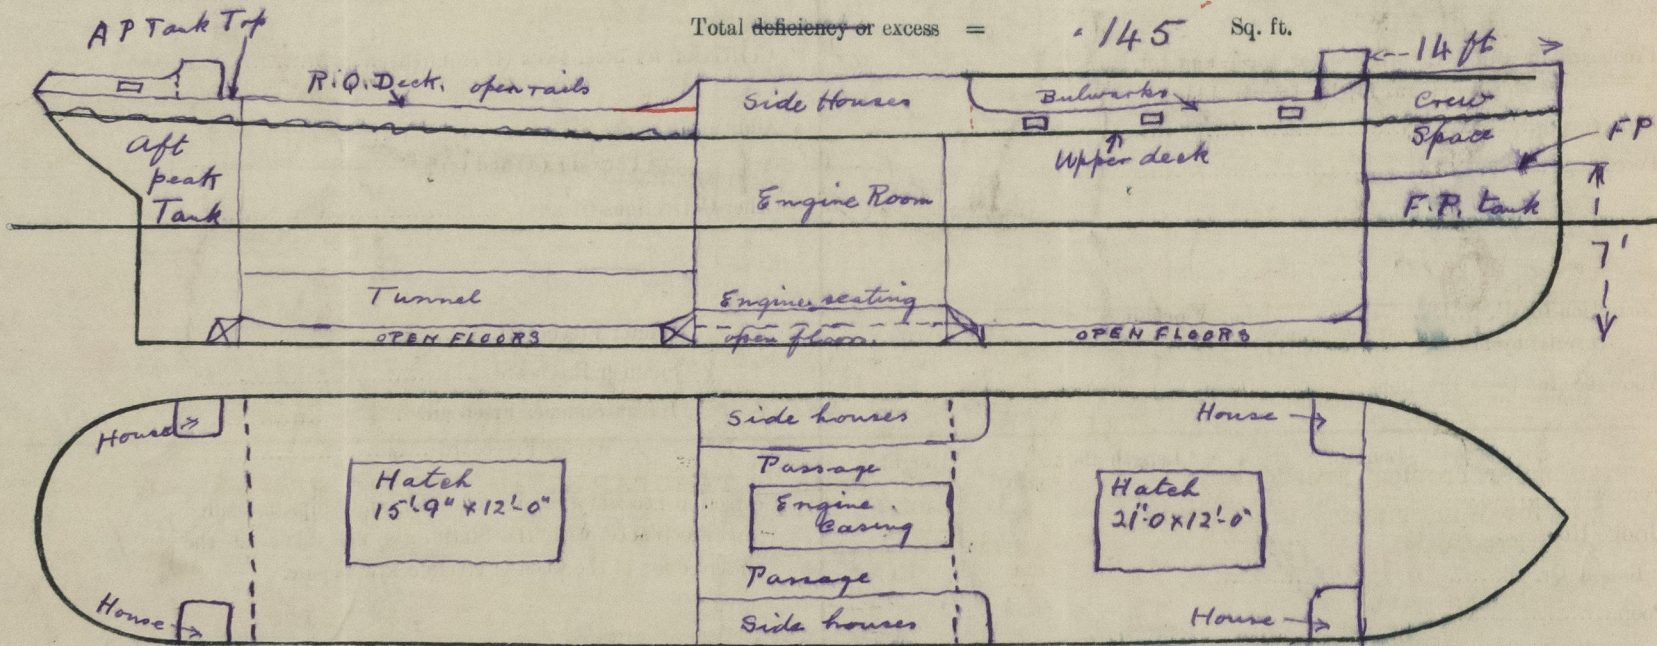 Total deficiency or excess = .145 Sq. ft.
A P Tank Top
R.Q. Deck. open rails
Side Houses
Bulwarks
14 ft
Crew
Space
FP
Aft
peak
Tank
Upper deck
Engine Room
F.P. tank
7'
Tunnel
Engine seating
OPEN FLOORS
open floors.
OPEN FLOORS
House
Side houses
House
Passage
Hatch
15'-9" x 12'-0"
Engine
Casing
Hatch
21'-0 x 12'-0"
Passage
House
Side houses
House